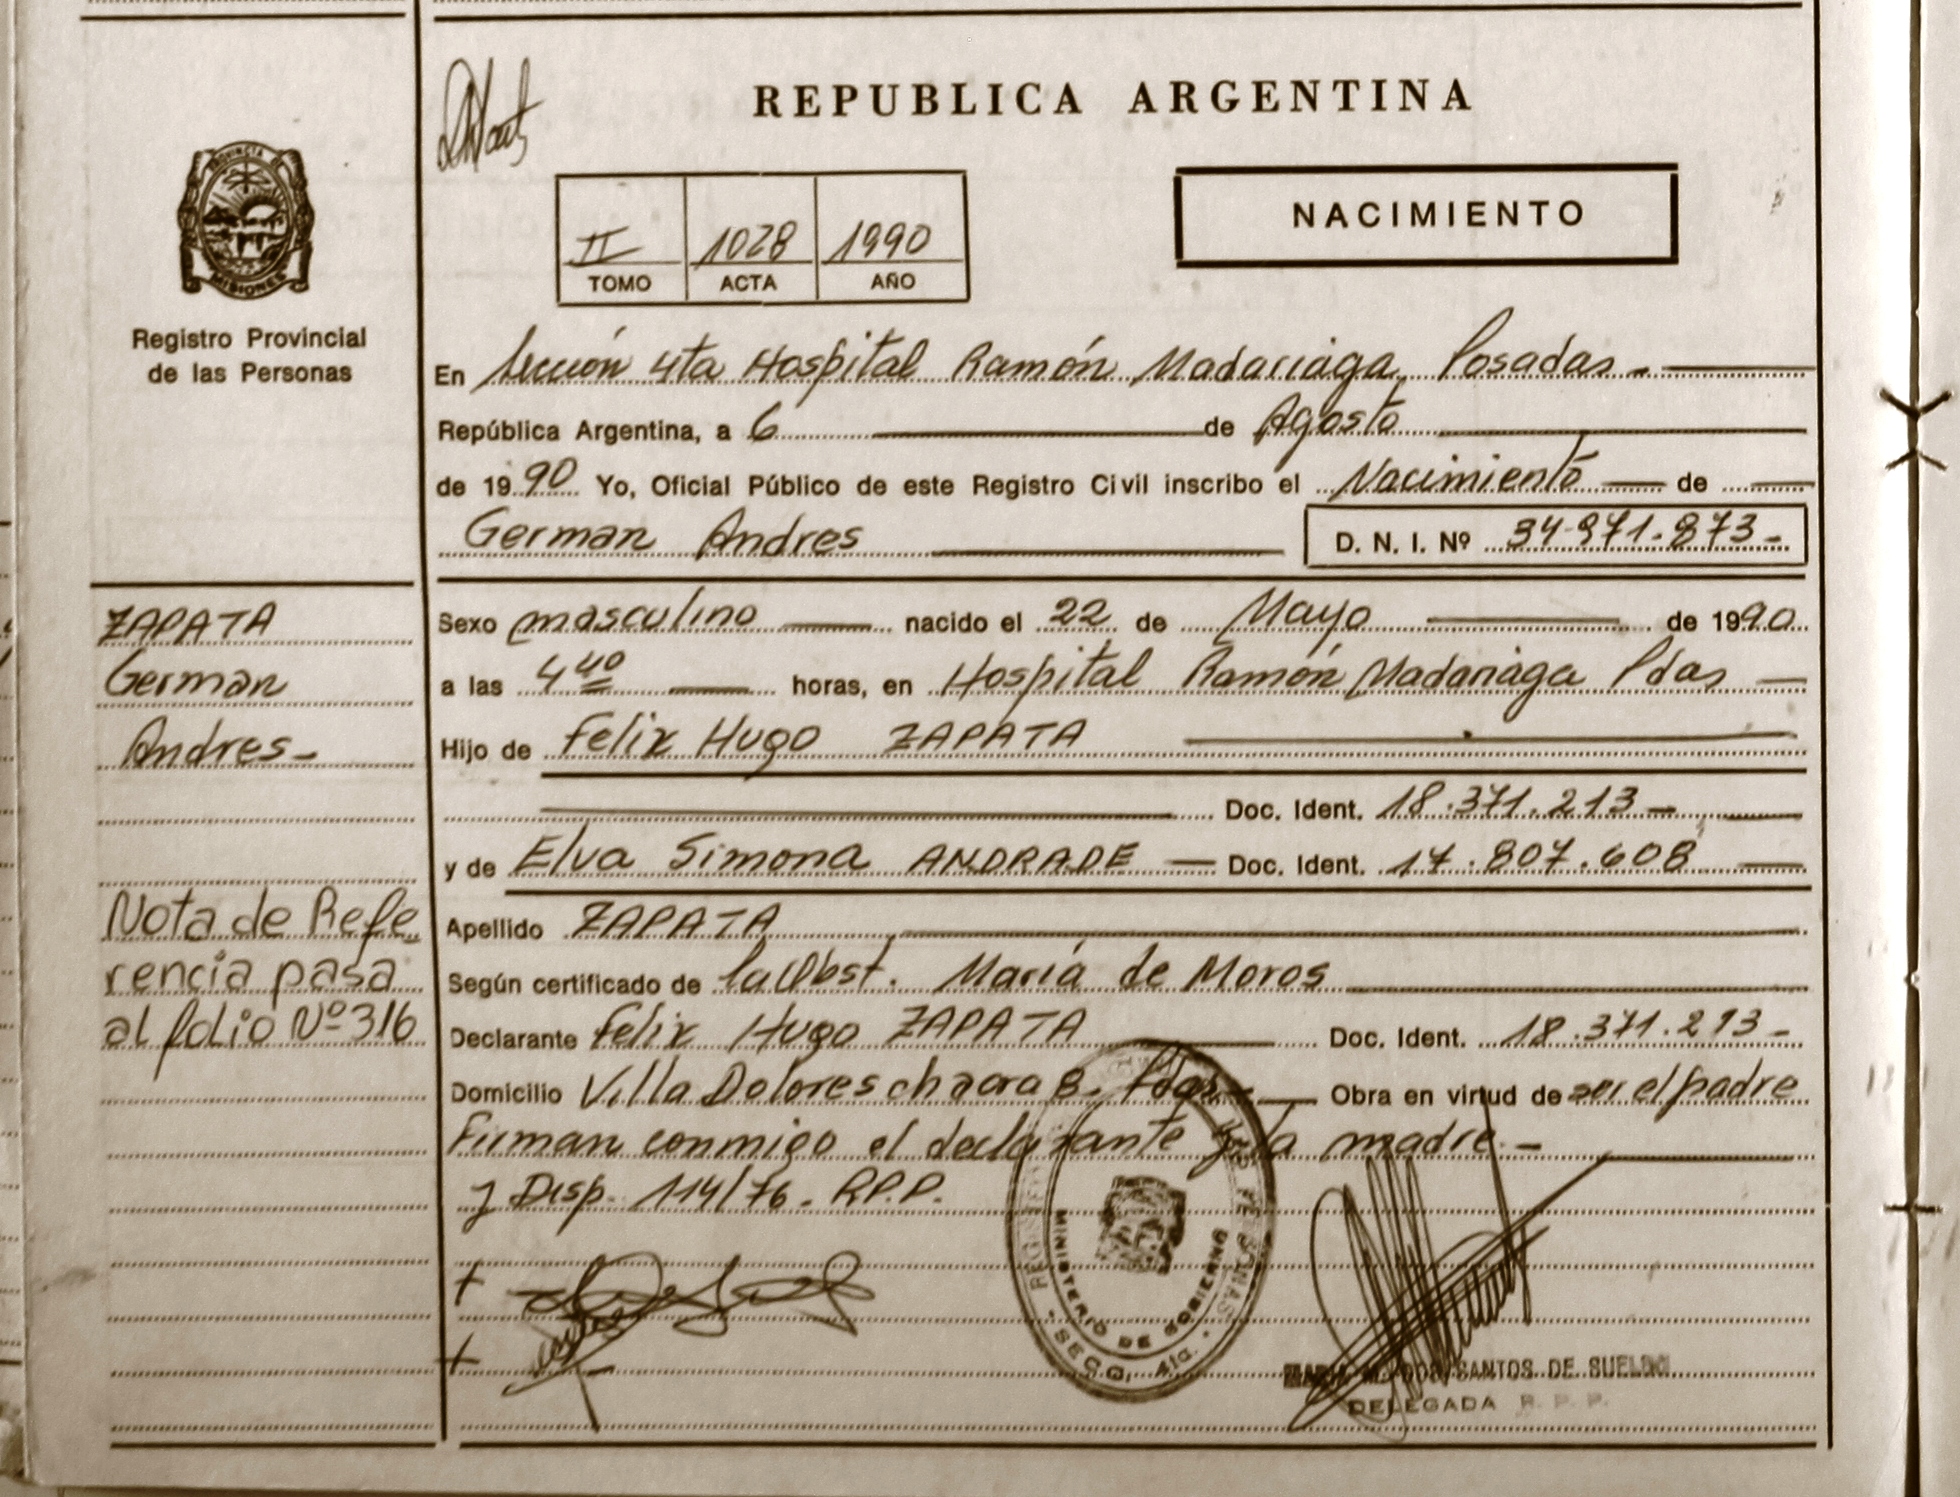 REPUBLICA ARGENTINA
PROVINCIA DE
MISIONES
Registro Provincial
de las Personas
II 1028 1990
TOMO ACTA AÑO
NACIMIENTO
En Sección 4ta Hospital Ramón Madariaga, Posadas.-
República Argentina, a 6 de Agosto
de 1990 Yo, Oficial Público de este Registro Civil inscribo el Nacimiento de
German Andres
D. N. I. Nº 34.971.873-
ZAPATA
German
Andres-
Nota de Refe
rencia pasa
al folio Nº 316
Sexo masculino nacido el 22 de Mayo de 1990
a las 4 40 horas, en Hospital Ramón Madariaga Pdas
Hijo de Felix Hugo ZAPATA
Doc. Ident. 18.371.213-
y de Elva Simona ANDRADE Doc. Ident. 17.807.608
Apellido ZAPATA
Según certificado de la Obst. María de Moros
Declarante Felix Hugo ZAPATA Doc. Ident. 18.371.213-
Domicilio Villa Dolores chacra 8. Pdas- Obra en virtud de ser el padre
Firman conmigo el declarante y la madre.-
y Disp. 114/76. R.P.P.
MINISTERIO DE GOBIERNO
SECC. 4ta.
SANTOS DE
DELEGADA R. P. P.